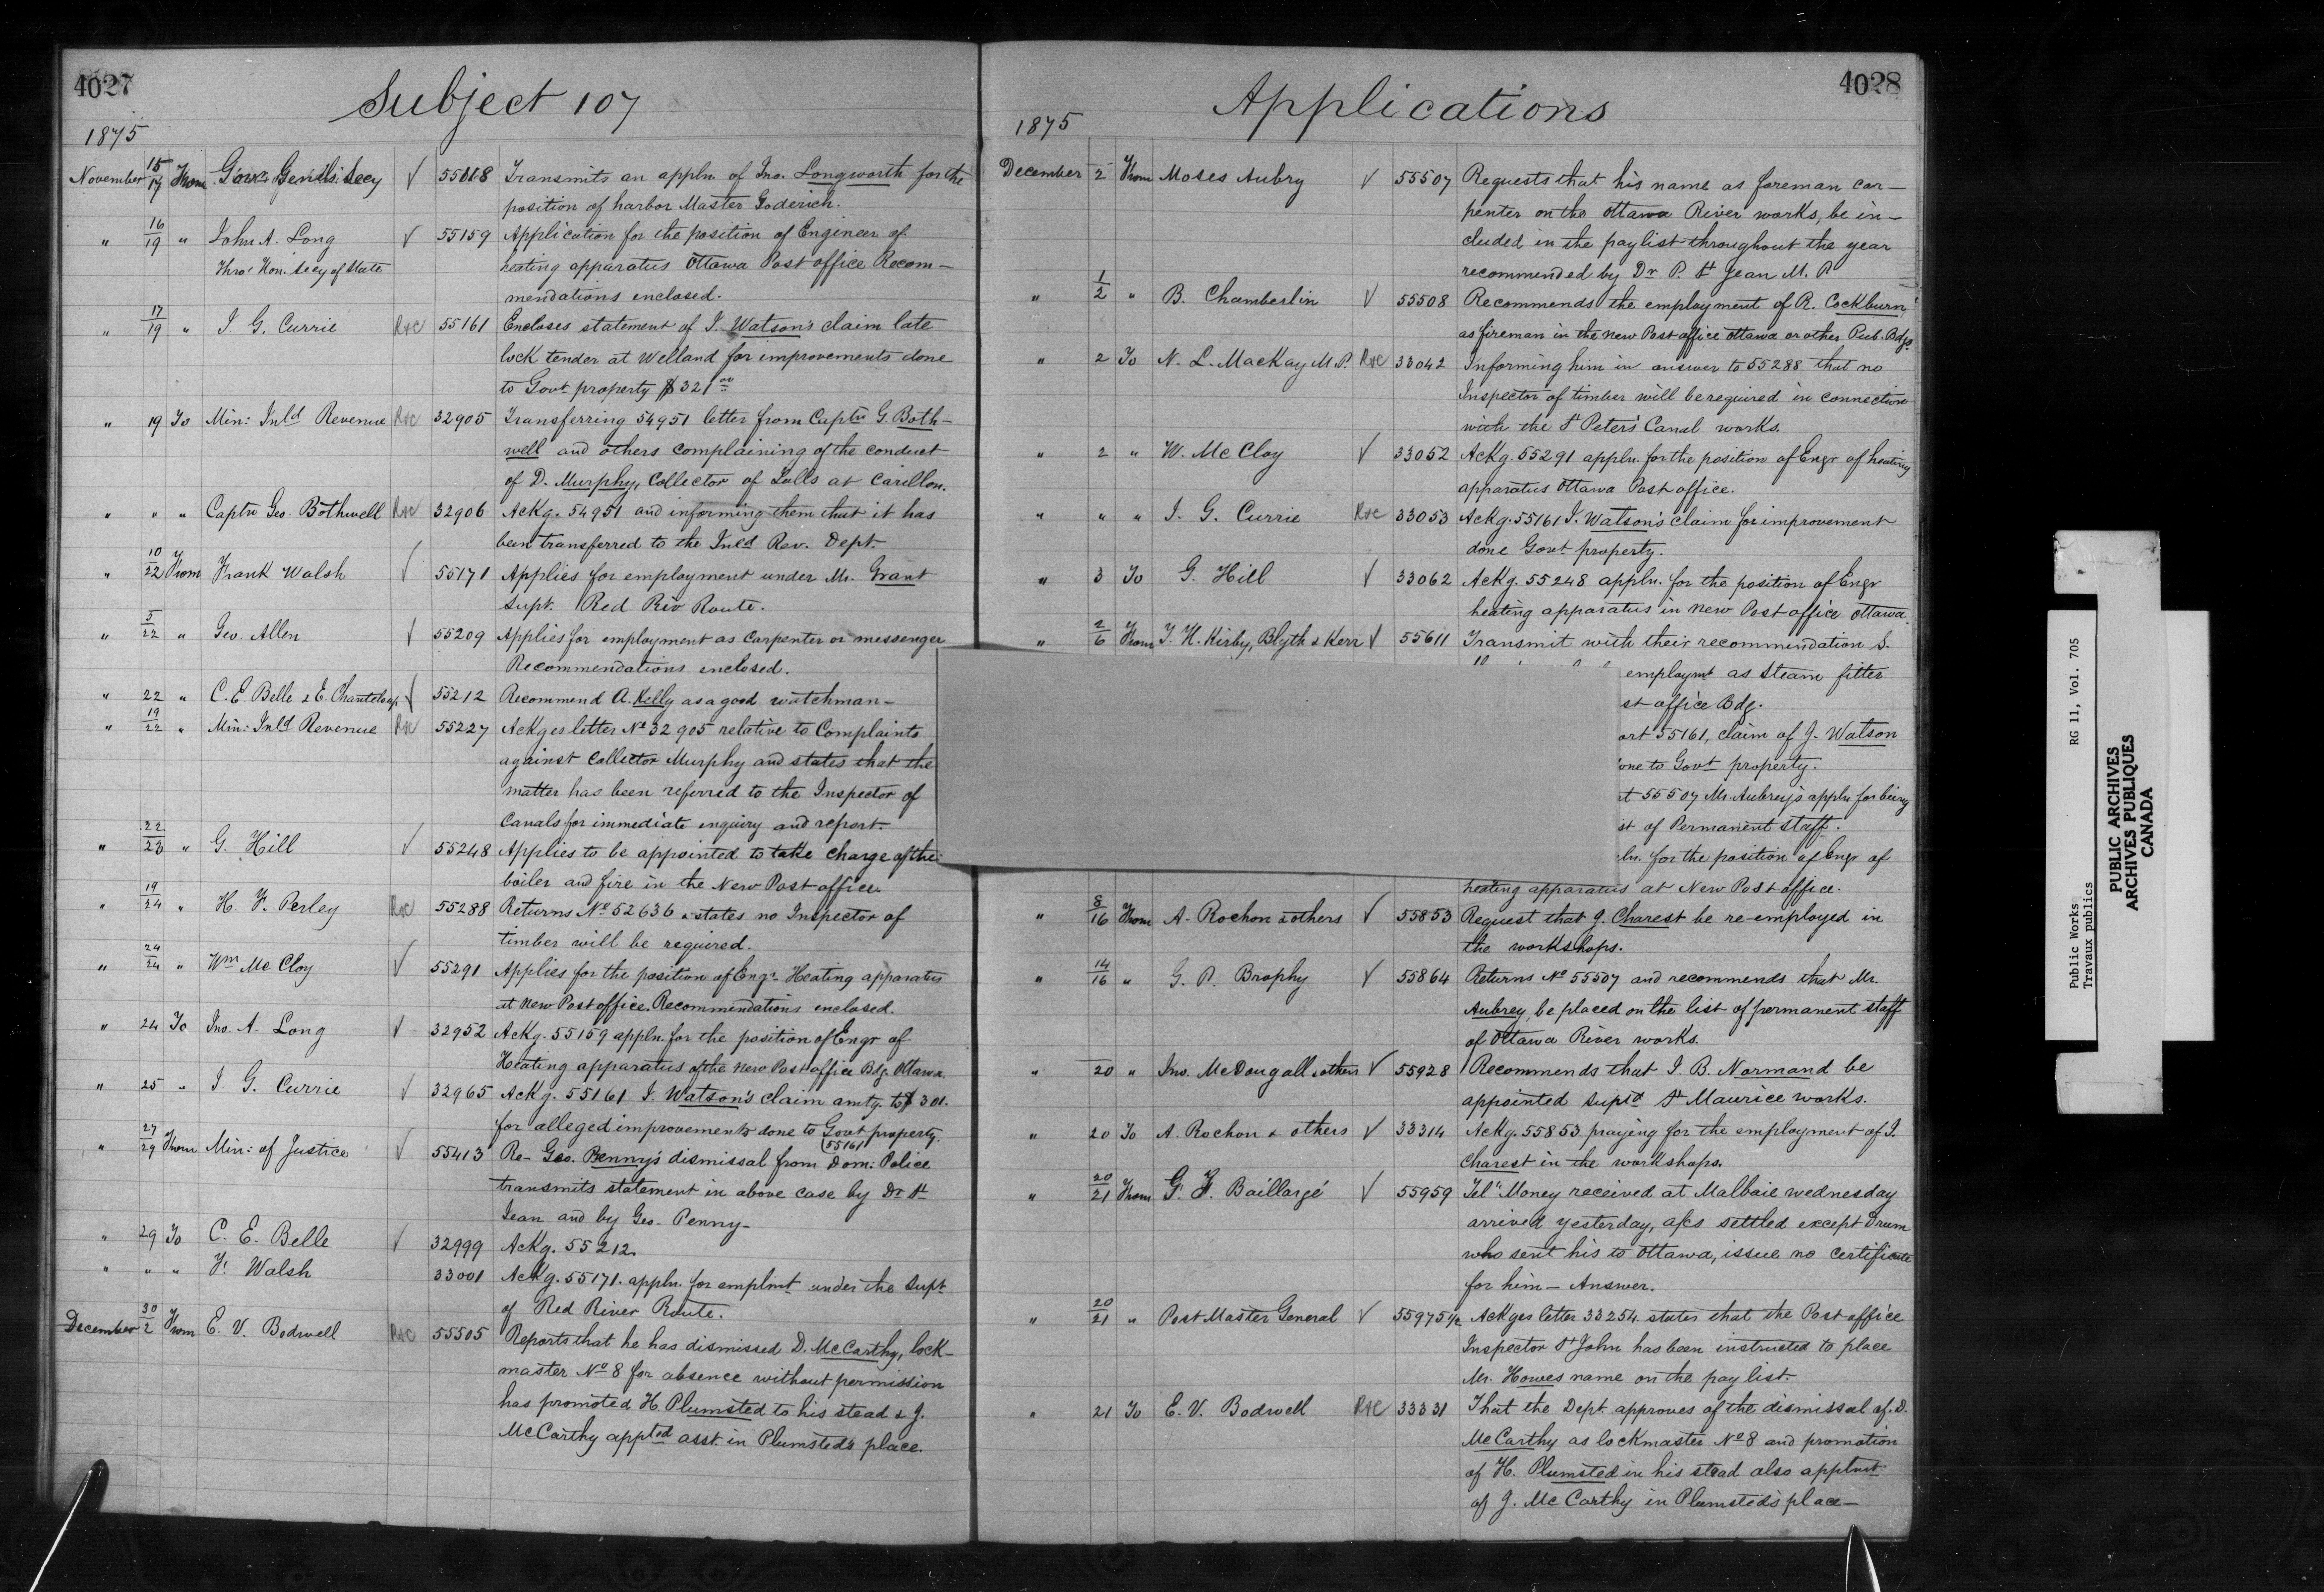 4027
Subject 107
1875
November 15/17 From Gov. Genl's: Secy √ 55118 Transmits an appln. of Jno. Longworth for the
position of harbor Master Goderich.
" 16/19 " John A. Long √ 55159 Application for the position of Engineer of
Thro' Hon. Secy of State heating apparatus Ottawa Post office Recom-
mendations enclosed.
" 17/19 " J. G. Currie R&C 55161 Encloses statement of J. Watson's claim late
lock tender at Welland for improvements done
to Govt property $321.00
" 19 To Min: Inld Revenue R&C 32905 Transferring 54951 letter from Captn G. Both-
well and others complaining of the conduct
of D. Murphy, Collector of Tolls at Carillon.
" " " Captn Geo. Bothwell R&C 32906 Ackg. 54951 and informing them that it has
been transferred to the Inld Rev. Dept.
" 10/22 From Frank Walsh √ 55171 Applies for employment under Mr. Grant
Supt. Red Riv Route.
" 5/22 " Geo. Allen √ 55209 Applies for employment as Carpenter or messenger
Recommendations enclosed.
" 22 " C. E. Belle & E. Chanteloup √ 55212 Recommend A. Kelly as a good watchman-
" 19/22 " Min: Inld Revenue R&C 55227 Ackges letter No 32905 relative to Complaints
against Collector Murphy and states that the
matter has been referred to the Inspector of
Canals for immediate enquiry and report.
" 22/23 " G. Hill √ 55248 Applies to be appointed to take charge of the
boiler and fire in the New Post office.
" 19/24 " H. F. Perley R&C 55288 Returns No 52636 & states no Inspector of
timber will be required.
" 24/24 " Wm McCloy √ 55291 Applies for the position of Engr. Heating apparatus
at New Post office. Recommendations enclosed.
" 24 To Jno. A. Long √ 32952 Ackg. 55159 appln. for the position of Engr of
Heating apparatus of the New Post office Bdg. Ottawa.
" 25 " J. G. Currie √ 32965 Ackg. 55161 J. Watson's claim amtg. to $301.
for alleged improvements done to Govt property.
(55161)
" 27/29 From Min: of Justice √ 55413 Re- Geo. Penny's dismissal from Dom: Police
transmits statement in above case by Dr St
Jean and by Geo. Penny-
" 29 To C. E. Belle √ 32999 Ackg. 55212.
" " " F. Walsh 33001 Ackg. 55171. appln. for emplmt under the Supt
of Red River Route.
December 30/2 From E. V. Bodwell R&C 55505 Reports that he has dismissed D. McCarthy, lock-
master No 8 for absence without permission
has promoted H. Plumsted to his stead & J.
McCarthy appted asst. in Plumsted's place.
4028
Applications
1875
December 2 From Moses Aubry √ 55507 Requests that his name as foreman car-
penter on the Ottawa River works, be in-
cluded in the paylist throughout the year
recommended by Dr P. St Jean M. P.
" 1/2 " B. Chamberlin √ 55508 Recommends the employment of R. Cockburn
as fireman in the new Post office Ottawa or other Pub. Bdgs
" 2 To N. L. MacKay M.P. R&C 33042 Informing him in answer to 55288 that no
Inspector of timber will be required in connection
with the St Peters' Canal works.
" 2 " W. McCloy √ 33052 Ackg. 55291 appln. for the position of Engr of heating
apparatus Ottawa Post office.
" " " J. G. Currie R&C 33053 Ackg. 55161 J. Watson's claim for improvement
done Govt property.
" 3 To G. Hill √ 33062 Ackg. 55248 appln. for the position of Engr
heating apparatus in new Post office Ottawa.
" 2/6 From T. H. Kirby, Blyth & Kerr √ 55611 Transmit with their recommendation S.
employmt as steam fitter
st office Bdg.
ort 55161, claim of J. Watson
one to Govt property.
rt 55507 Mr. Aubrey's appln for being
st of Permanent staff.
ln. for the position of Engr of
heating apparatus at New Post office.
" 8/16 From A. Rochon & others √ 55853 Request that J. Charest be re-employed in
the workshops.
" 14/16 " G. P. Brophy √ 55864 Returns No 55507 and recommends that Mr.
Aubrey, be placed on the list of permanent staff
of Ottawa River works.
" 20 " Jno. McDougall & others √ 55928 Recommends that J. B. Normand be
appointed Supt St Maurice works.
" 20 To A. Rochon & others √ 33314 Ackg. 55853 praying for the employment of J.
Charest in the workshops.
" 20/21 From G. F. Baillargé √ 55959 Tel" Money received at Malbaie wednesday
arrived yesterday, a/cs settled except Drum
who sent his to Ottawa, issue no certificate
for him - Answer.
" 20/21 " Post Master General √ 55975½ Ackges letter 33254 states that the Post office
Inspector St John has been instructed to place
Mr. Howes name on the pay list.
" 21 To E. V. Bodwell R&C 33331 That the Dept. approves of the dismissal of D.
McCarthy as lockmaster No 8 and promotion
of H. Plumsted in his stead also apptmt
of J. McCarthy in Plumsted's place-
Public Works RG 11, Vol. 705
Travaux publics
PUBLIC ARCHIVES
ARCHIVES PUBLIQUES
CANADA